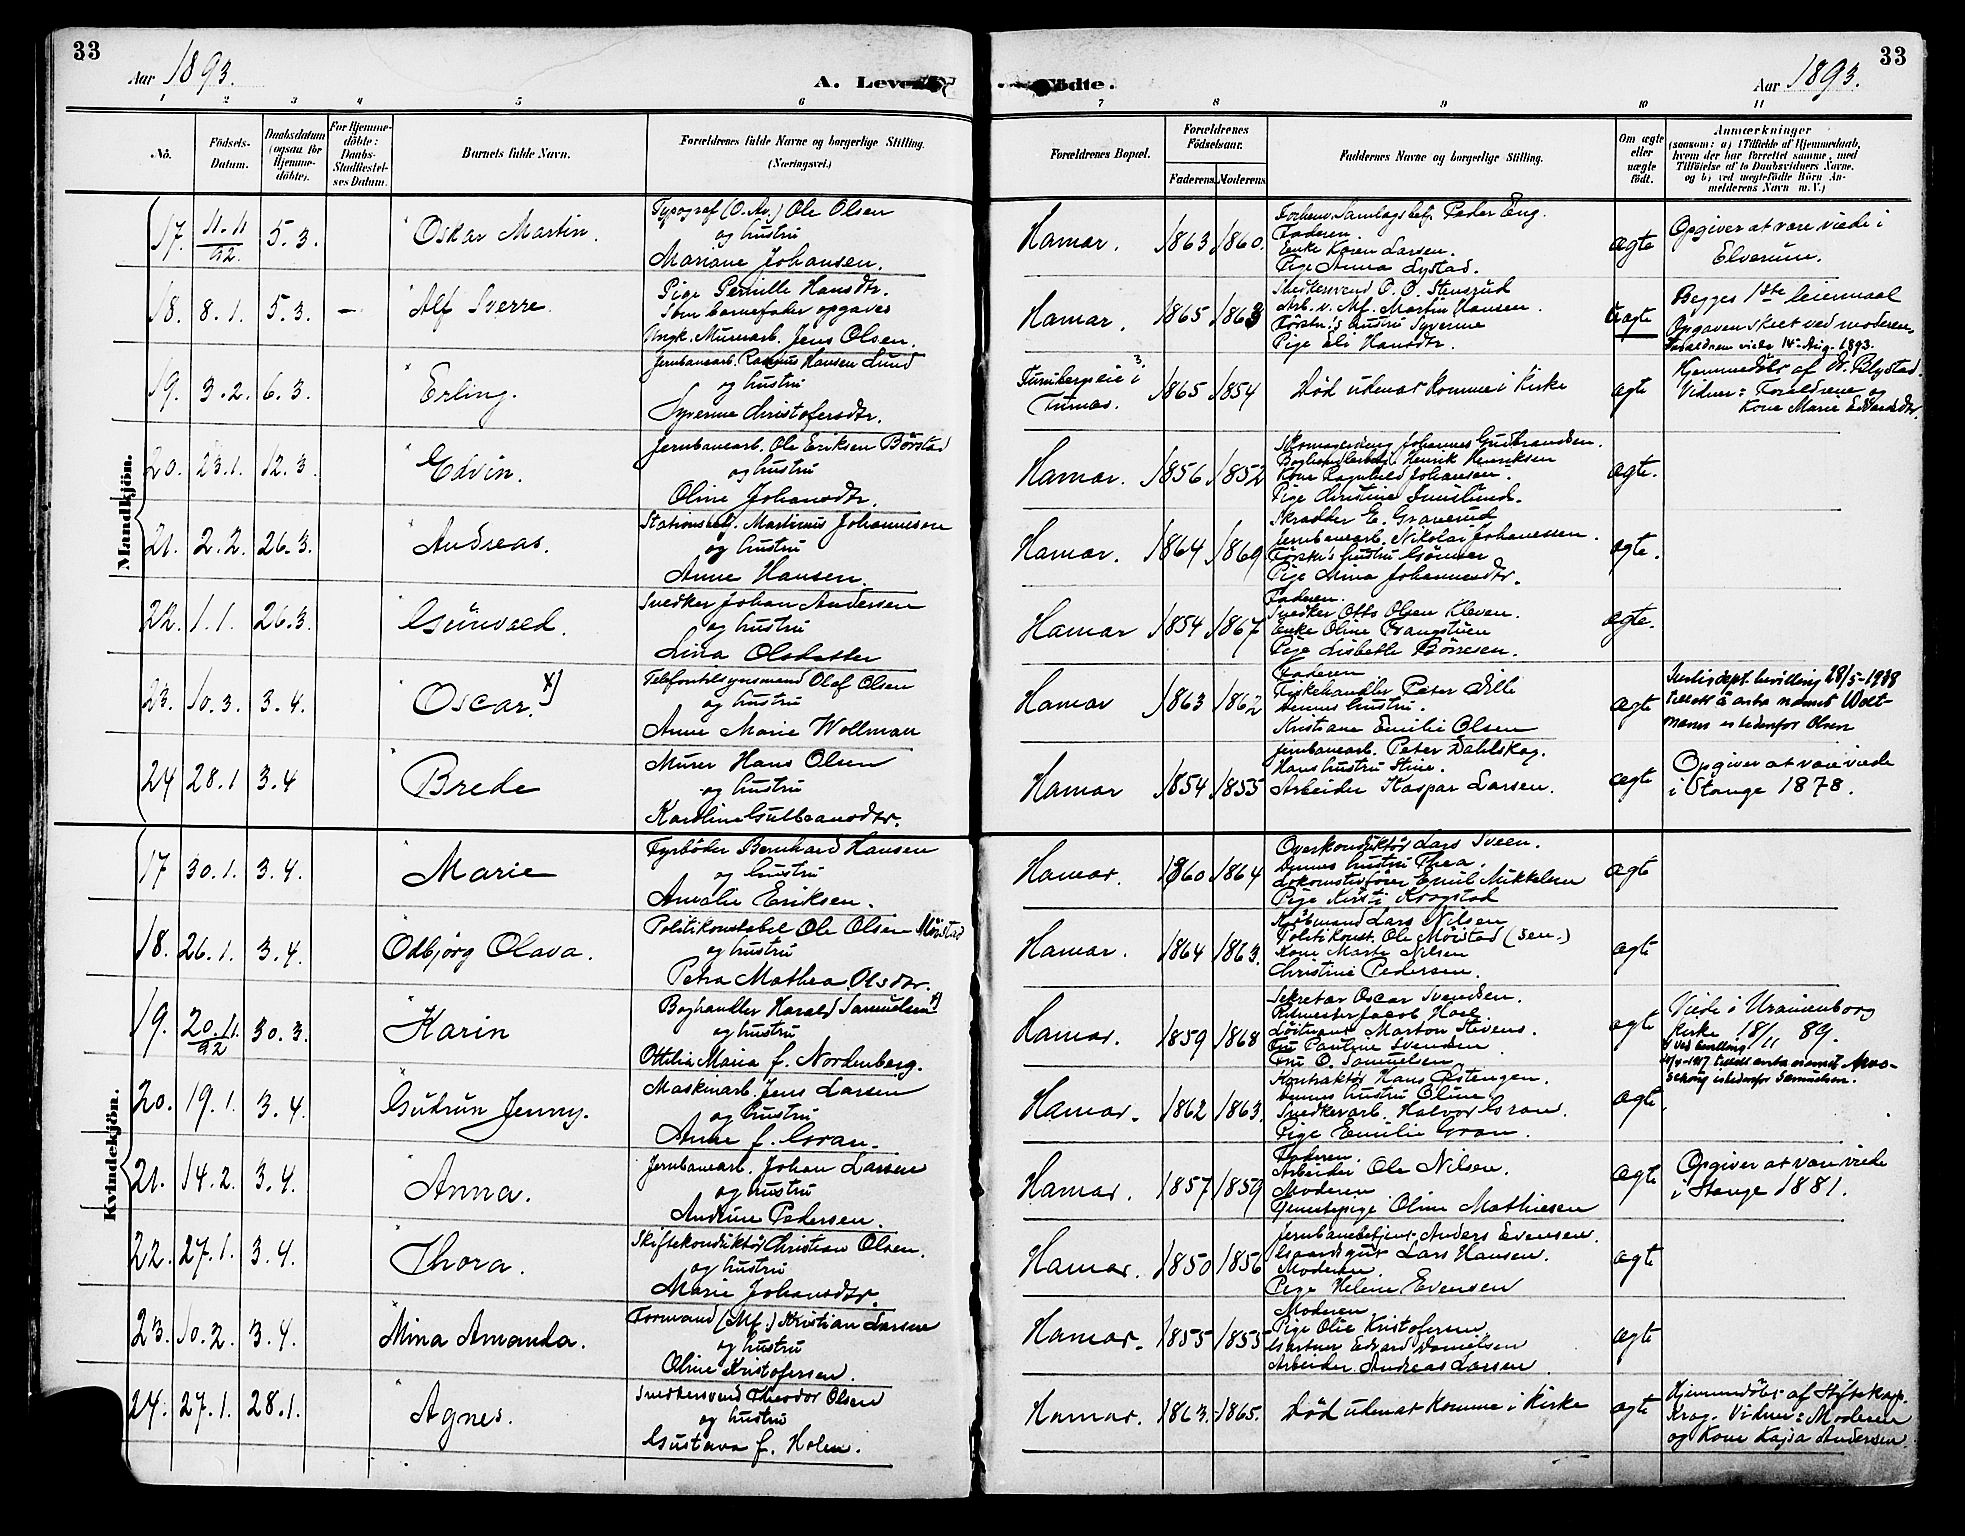 33
Aar 1893.
A. Levende
1 2 3 4 5 6
No.
Fødsels-Datum.
Daabsdatum (ogsaa for Hjemme-døbte).
For Hjemme-døbte: Daabs-Stadfæstel-ses Datum.
Barnets fulde Navn.
Forældrenes fulde Navne og borgerlige Stilling. (Næringsvei.)
Mandkjøn.
17. 11.11 92. 5.3. Oskar Martin.
Typograf (O. Av.) Ole Olsen
og hustru
Mariane Johansen.
18. 8.1. 5.3. — Alf Sverre.
Pige Pernille Hansdtr.
Som barnefader opgaves
Ungk. Murarb. Jens Olsen.
19. 3.2. 6.3. Erling.
Jernbanearb. Rasmus Hansen Lund
og hustru
Syverine Christofersdtr.
20. 23.1. 12.3. Edvin.
Jernbanearb. Ole Eriksen Børstad
og hustru
Oline Johansdtr.
21. 2.2. 26.3. Andreas.
Stationsbetj. Martinius Johannesen
og hustru
Anne Hansen.
22. 1.1. 26.3. Günvald.
Snedker Johan Andersen
og hustru
Lina Olsdatter
23. 10.3. 3.4. Oscar. x)
Telefontilsynsmand Olaf Olsen
og hustru
Anne Marie Wollman
24 28.1 3.4 Brede
Murer Hans Olsen
og hustru
Karoline Gulbrandsdtr.
Kvindekjøn.
17 30.1. 3.4. Marie
Fyrbøder Bernhard Hansen
og hustru
Amalie Eriksen.
18. 26.1. 3.4. Odbjørg Olava.
Politikonstabel Ole Olsen Møistad
og hustru
Petra Mathea Olsdtr.
19. 20.11. 92 30.3. Karin
Boghandler Harald Samuelsen x)
og hustru
Ottilia Maria f. Nordenberg.
20. 19.1. 3.4. Gudrun Jenny.
Maskinarb. Jens Larsen
og hustru
Anne f. Gran.
21. 14.2. 3.4. Anna.
Jernbanearb. Johan Larsen
og hustru
Andrine Pedersen.
22. 27.1. 3.4. Thora.
Skiftekonduktør Christian Olsen.
og hustru
Marie Johansdtr.
23. 10.2. 3.4. Mina Amanda.
Formand (Mf.) Kristian Larsen
og hustru
Oline Kristofersen.
24. 27.1. 28.1. Agnes.
Snedkersvend Theodor Olsen
og hustru
Gustava f. Holm.
33
Fødte.
Aar 1893.
7 8 9 10 11
Forældrenes Bopæl.
Forældrenes Fødselsaar.
Faderens. Moderens.
Faddernes Navne og borgerlige Stilling.
Om ægte eller uægte født.
Anmærkninger
(saasom: a) i Tilfælde af Hjemmedaab, hvem der har forrettet samme, med Tilføielse af to Daabsvidners Navne, og b) ved uægtefødte Børn Anmelderens Navn m. V.)
Hamar. 1863 1860.
Forhenv. Samlagsbetj. Peder Eng.
Faderen.
Enke Karen Larsen.
Pige Anna Lystad.
ægte
Opgiver at være viede i
Elverum.
Hamar. 1865 1863
O. O. Stensrud
Arb. v. Mf. Martin Hansen.
Førstn's hustru Syverine
Pige Eli Hansdtr.
Uægte
Begges 1ste leiermaal
Opgaven skeet ved moderen.
Forældrene viede 14. Aug. 1893.
Furubergseie i
Furnes. 1865 1854 Død uden at komme i Kirke ægte
Hjemmedøbt af Dr. Blystad.
Vidner: Forældrene og
Kone Marie Edvardsdtr.
Hamar. 1856 1852
Johannes Gudbrandsen.
Henrik Henriksen
Kone Ragnhild Johansen.
Pige Christine
ægte.
Hamar. 1864 1869
Skrædder E. Graverud
Jernbanearb. Nikolai Johannessen.
Førstn's hustru
Pige Lina Johannesdtr.
ægte.
Hamar 1854 1867
Faderen.
Snedker Otto Olsen Kleven.
Enke Oline
Pige Lisbeth Børresen.
ægte.
Hamar 1863 1862
Faderen
Fiskehandler Peter Lille
Dennes hustru.
Kristiane Emilie Olsen
ægte
Justisdept. bevilling 28/5-1908
tillatt å anta navnet Wolt-
mann istedenfor Olsen
Hamar 1854 1855
Jernbanearb. Peter Dahlskog.
Hans hustru Stine.
Arbeider Kaspar Larsen.
ægte
Opgiver at være viede
i Stange 1878.
Hamar. 1860 1864
Overkonduktør Lars Sveen.
Dennes hustru Thea.
Lokomotivfører Emil Mikkelsen
Pige Kirsti Krogstad
ægte
Hamar. 1864 1863.
Kjøbmand Lars Nilsen
Politikonst. Ole Møistad (sen.)
Kone Marte Nilsen
Christine Pedersen.
ægte
Hamar. 1859 1868
Sekretær Oscar Svendsen.
Ritmester Jacob Hoel
Løitnant Morton Stivens.
Fru Pauline Svendsen
Fru O. Samuelsen
ægte
Viede i Uranienborg
Kirke 18/11 89.
x) ved bevilling
1917 tillatt anta navnet
istedenfor Samuelsen.
Hamar. 1862 1863.
Kontraktør Hans Østengen.
Dennes hustru Oline.
Snedkerarb. Halvor Gran.
Pige Emilie Gran.
ægte.
Hamar. 1857 1859
Faderen.
Arbeider Ole Nilsen.
Moderen
Tjenestepige Oline Mathiesen
ægte
Opgiver at være viede
i Stange 1881.
Hamar. 1850 1856
Jernbanebetjent Anders Evensen.
Gaardsgut Lars Hansen.
Moderen
Pige Helene Evensen
ægte
Hamar. 1855 1855
Moderen
Pige Olie Kristofersen
Gartner Edvard Danielsen
Arbeider Andreas Larsen
ægte
Hamar. 1863. 1865. Død uden at komme i Kirke ægte
Hjemmedøbt af Stiftskap.
Krag. Vidner: Moderen
og Kone Kajsa Andersen